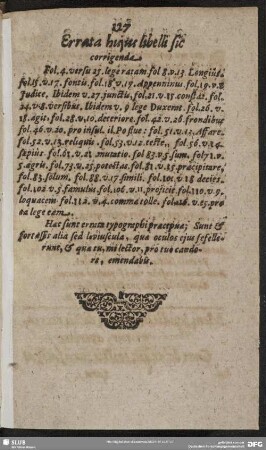 127
Errata hujus libelli sic
corrigenda.
Fol. 4. versu 25. lege raram. fol 8. v. 13. Longius.
fol. 15. v. 17. fontis. fol. 18. v. 19. Appenninus. fol. 19. v. 8
Judice. Ibidem v. 27. junctis, fol. 21. v. 15. constat. fol.
24. v. 8. versibus. Ibidem v. 9 lege Duxerat. fol. 26. v.
18. agit. fol. 28. v. 10. deteriore. fol. 42. v. 26. frondibus
fol. 46. v. 20. pro insul. il. Posiue: fol. 51. v. 12. Affare.
fol. 52. v. 13. reliquit. fol. 53. v. 12. tecte. fol. 56. v. 14.
sapius. fol. 61. v. 21 mutatio. fol 63. v. 5. sum. fol. 71. v.
5 agris, fol. 73. v. 25. potestas. fol. 81. v. 15. pracipitare,
fol. 83. solum. fol. 88. v. 17. simili. fol. 101. v. 18 decies.
fol. 102. v 5 famulus. fol. 106. v. 11. proficit. fol. 110. v. 9.
loquacem. fol. 112. v. 4. comma tolle. fol. 126. v. 25. pro
ea lege eam.
Hac sunt errata typographi pracepua; Sunt &
fortassis alia sed leviuscula, qua oculos ejus fefelle-
runt, & qua tu, mi lector, pro tuo cando-
re, emendabis.
SLUB
DFG